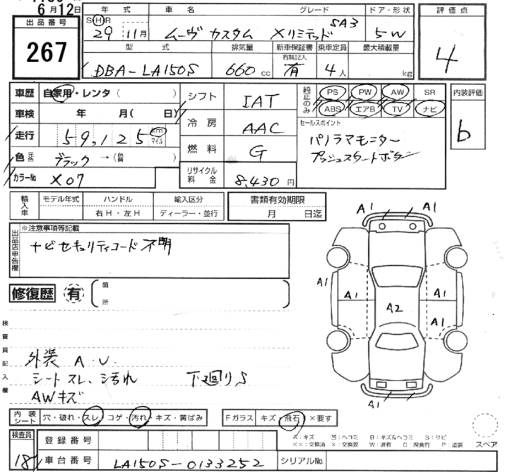 6月12日
年式 車名 グレード ドア・形状 評価点
出品番号
267
SHR
29年 11月 ムーヴ カスタム Xリミテッド SA3 5W
4
型式 排気量 新車保証書 乗車定員 最大積載量
有無記入
DBA-LA150S 660cc 有 4人 kg
車歴 自家用・レンタ( )
シフト IAT
純正のみ PS PW AW SR
ABS エアB TV ナビ
内装評価
b
車検 年 月( 日)
冷房 AAC
セールスポイント
パノラマモニター
プッシュスタートボタン
走行 59,125 km マイル
燃料 G
色 ブラック →( )
リサイクル料金 8,430円
カラーNo X07
輸入車 モデル年式 ハンドル 輸入区分 書類有効期限
右H・左H ディーラー・並行 月 日迄
※注意事項等記載
ナビセキュリティコード不明
修復歴 有 箇所
A1
A1 A1 A1
A2
A1
検査員記入欄
外装 A.U.
シートスレ、汚れ 下廻りS
AWキズ
内装シート 穴・破れ・スレ コゲ・汚れ・キズ・黄ばみ Fガラス キズ・飛石・×要す
スペア
検査員 登録番号
18 車台番号 LA150S-0133252 シリアルNo.